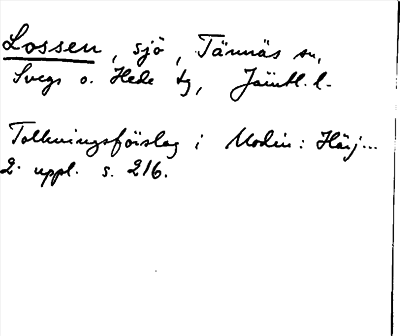 Lossen, sjö, Tännäs sn,
Svegs o. Hede tg, Jämtl. l.
Tolkningsförslag i Modin: Härj...
2. uppl. s. 216.